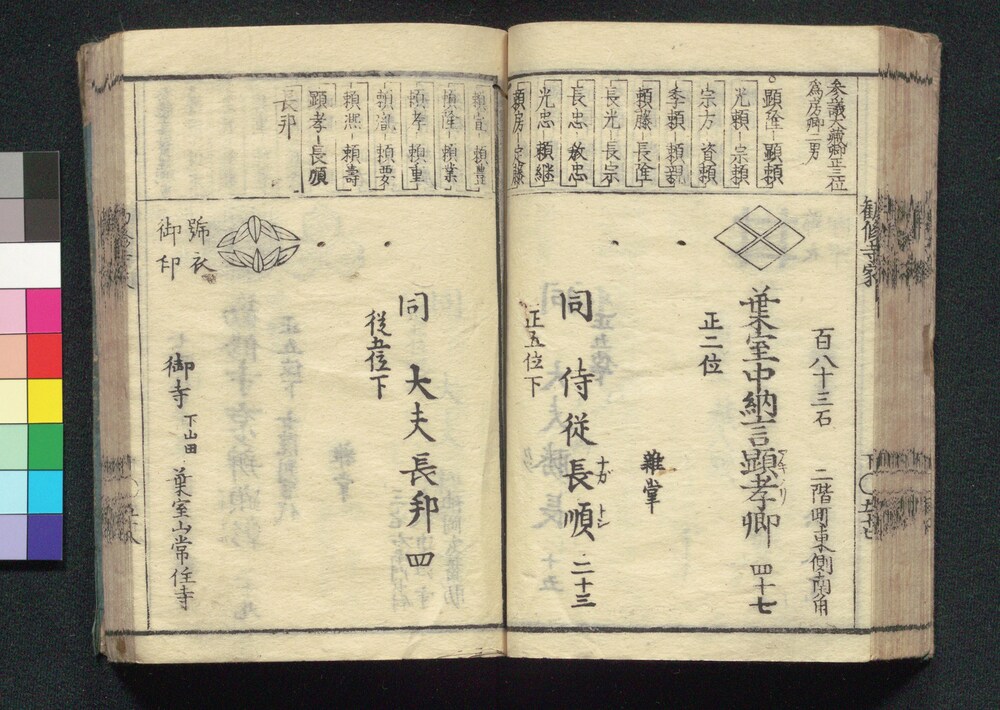 勧修寺家
参議大蔵卿正三位
為房卿二男
顕隆 顕頼
光頼 宗頼
宗方 資頼
季頼 頼親
頼藤 長隆
長光 長宗
長忠 教忠
光忠 頼継
頼房 定藤
頼宣 頼豊
頼隆 頼業
頼孝 頼重
頼胤 頼要
頼熙 頼寿
顕孝 長順
長邦
百八十三石
二階町東側南角
葉室中納言顕孝卿 四十七
アキ ノリ
正二位
雑掌
同 侍従長順 二十三
ナガ トシ
正五位下
同 大夫長邦 四
従五位下
號衣
御印
御寺 下山田 葉室山常住寺
下 五十七